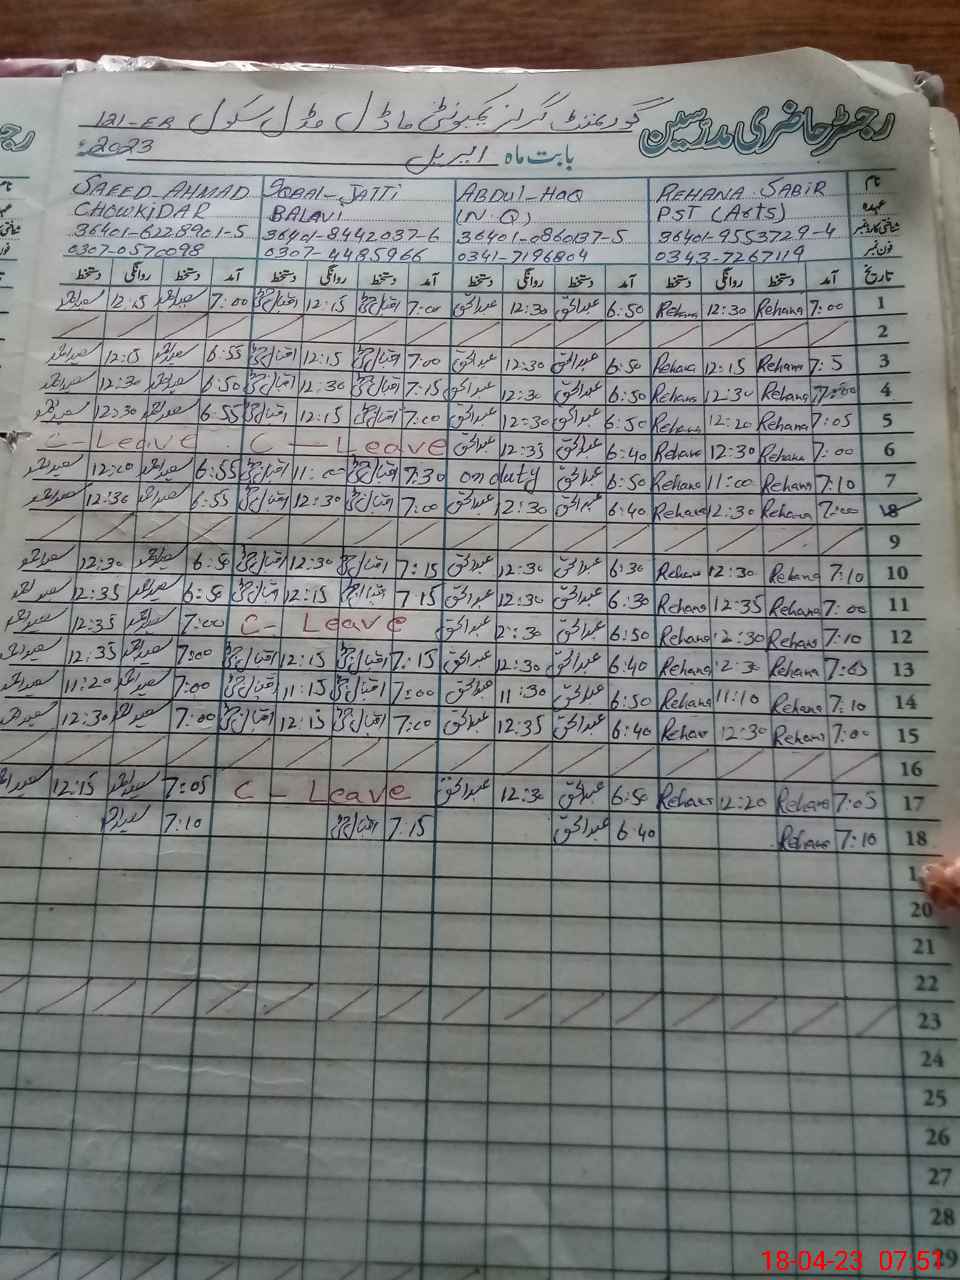 رجسٹر حاضری مدرسین گورنمنٹ گرلز کمیونٹی ماڈل مڈل سکول 121-EB
بابت ماہ اپریل 2023
نام REHANA SABIR ABDUL-HAQ IQBAL-JATTI SAEED AHMAD
عہدہ PST (Arts) (N.Q) BALAVI CHOWKIDAR
شناختی کارڈ نمبر 36401-9553729-4 36401-0860137-5 36401-8442037-6 36401-6228901-5
فون نمبر 0343-7267119 0341-7196804 0307-4485966 0307-0570098
تاریخ آمد دستخط روانگی دستخط آمد دستخط روانگی دستخط آمد دستخط روانگی دستخط آمد دستخط روانگی دستخط
1 7:00 Rehana 12:30 Rehana 6:50 عبدالحق 12:30 عبدالحق 7:00 اقبال 12:15 اقبال 7:00 سعید احمد 12:15 سعید احمد
2
3 7:5 Rehana 12:15 Rehana 6:50 عبدالحق 12:30 عبدالحق 7:00 اقبال 12:15 اقبال 6:55 سعید احمد 12:15 سعید احمد
4 7:00 Rehana 12:30 Rehana 6:50 عبدالحق 12:30 عبدالحق 7:15 اقبال 12:30 اقبال 6:50 سعید احمد 12:30 سعید احمد
5 7:05 Rehana 12:20 Rehana 6:50 عبدالحق 12:30 عبدالحق 7:00 اقبال 12:15 اقبال 6:55 سعید احمد 12:30 سعید احمد
6 7:00 Rehana 12:30 Rehana 6:40 عبدالحق 12:35 عبدالحق C - Leave C - Leave
7 7:10 Rehana 11:00 Rehana 6:50 عبدالحق on duty 7:30 اقبال 11:00 اقبال 6:55 سعید احمد 12:00 سعید احمد
8 7:00 Rehana 12:30 Rehana 6:40 عبدالحق 12:30 عبدالحق 7:00 اقبال 12:30 اقبال 6:55 سعید احمد 12:30 سعید احمد
9
10 7:10 Rehana 12:30 Rehana 6:30 عبدالحق 12:30 عبدالحق 7:15 اقبال 12:30 اقبال 6:50 سعید احمد 12:30 سعید احمد
11 7:00 Rehana 12:35 Rehana 6:30 عبدالحق 12:30 عبدالحق 7:15 اقبال 12:15 اقبال 6:50 سعید احمد 12:35 سعید احمد
12 7:10 Rehana 12:30 Rehana 6:50 عبدالحق 12:30 عبدالحق C - Leave 7:00 سعید احمد 12:35 سعید احمد
13 7:05 Rehana 12:30 Rehana 6:40 عبدالحق 12:30 عبدالحق 7:15 اقبال 12:15 اقبال 7:00 سعید احمد 12:35 سعید احمد
14 7:10 Rehana 11:10 Rehana 6:50 عبدالحق 11:30 عبدالحق 7:00 اقبال 11:15 اقبال 7:00 سعید احمد 11:20 سعید احمد
15 7:00 Rehana 12:30 Rehana 6:40 عبدالحق 12:35 عبدالحق 7:00 اقبال 12:15 اقبال 7:00 سعید احمد 12:30 سعید احمد
16
17 7:05 Rehana 12:20 Rehana 6:50 عبدالحق 12:30 عبدالحق C - Leave 7:05 سعید احمد 12:15 سعید احمد
18 7:10 Rehana 6:40 عبدالحق 7:15 اقبال 7:10 سعید احمد
20
21
22
23
24
25
26
27
28
29
18-04-23 07:51